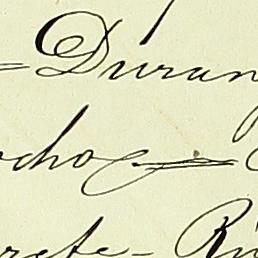 = Duran
ocho
rete - Ri